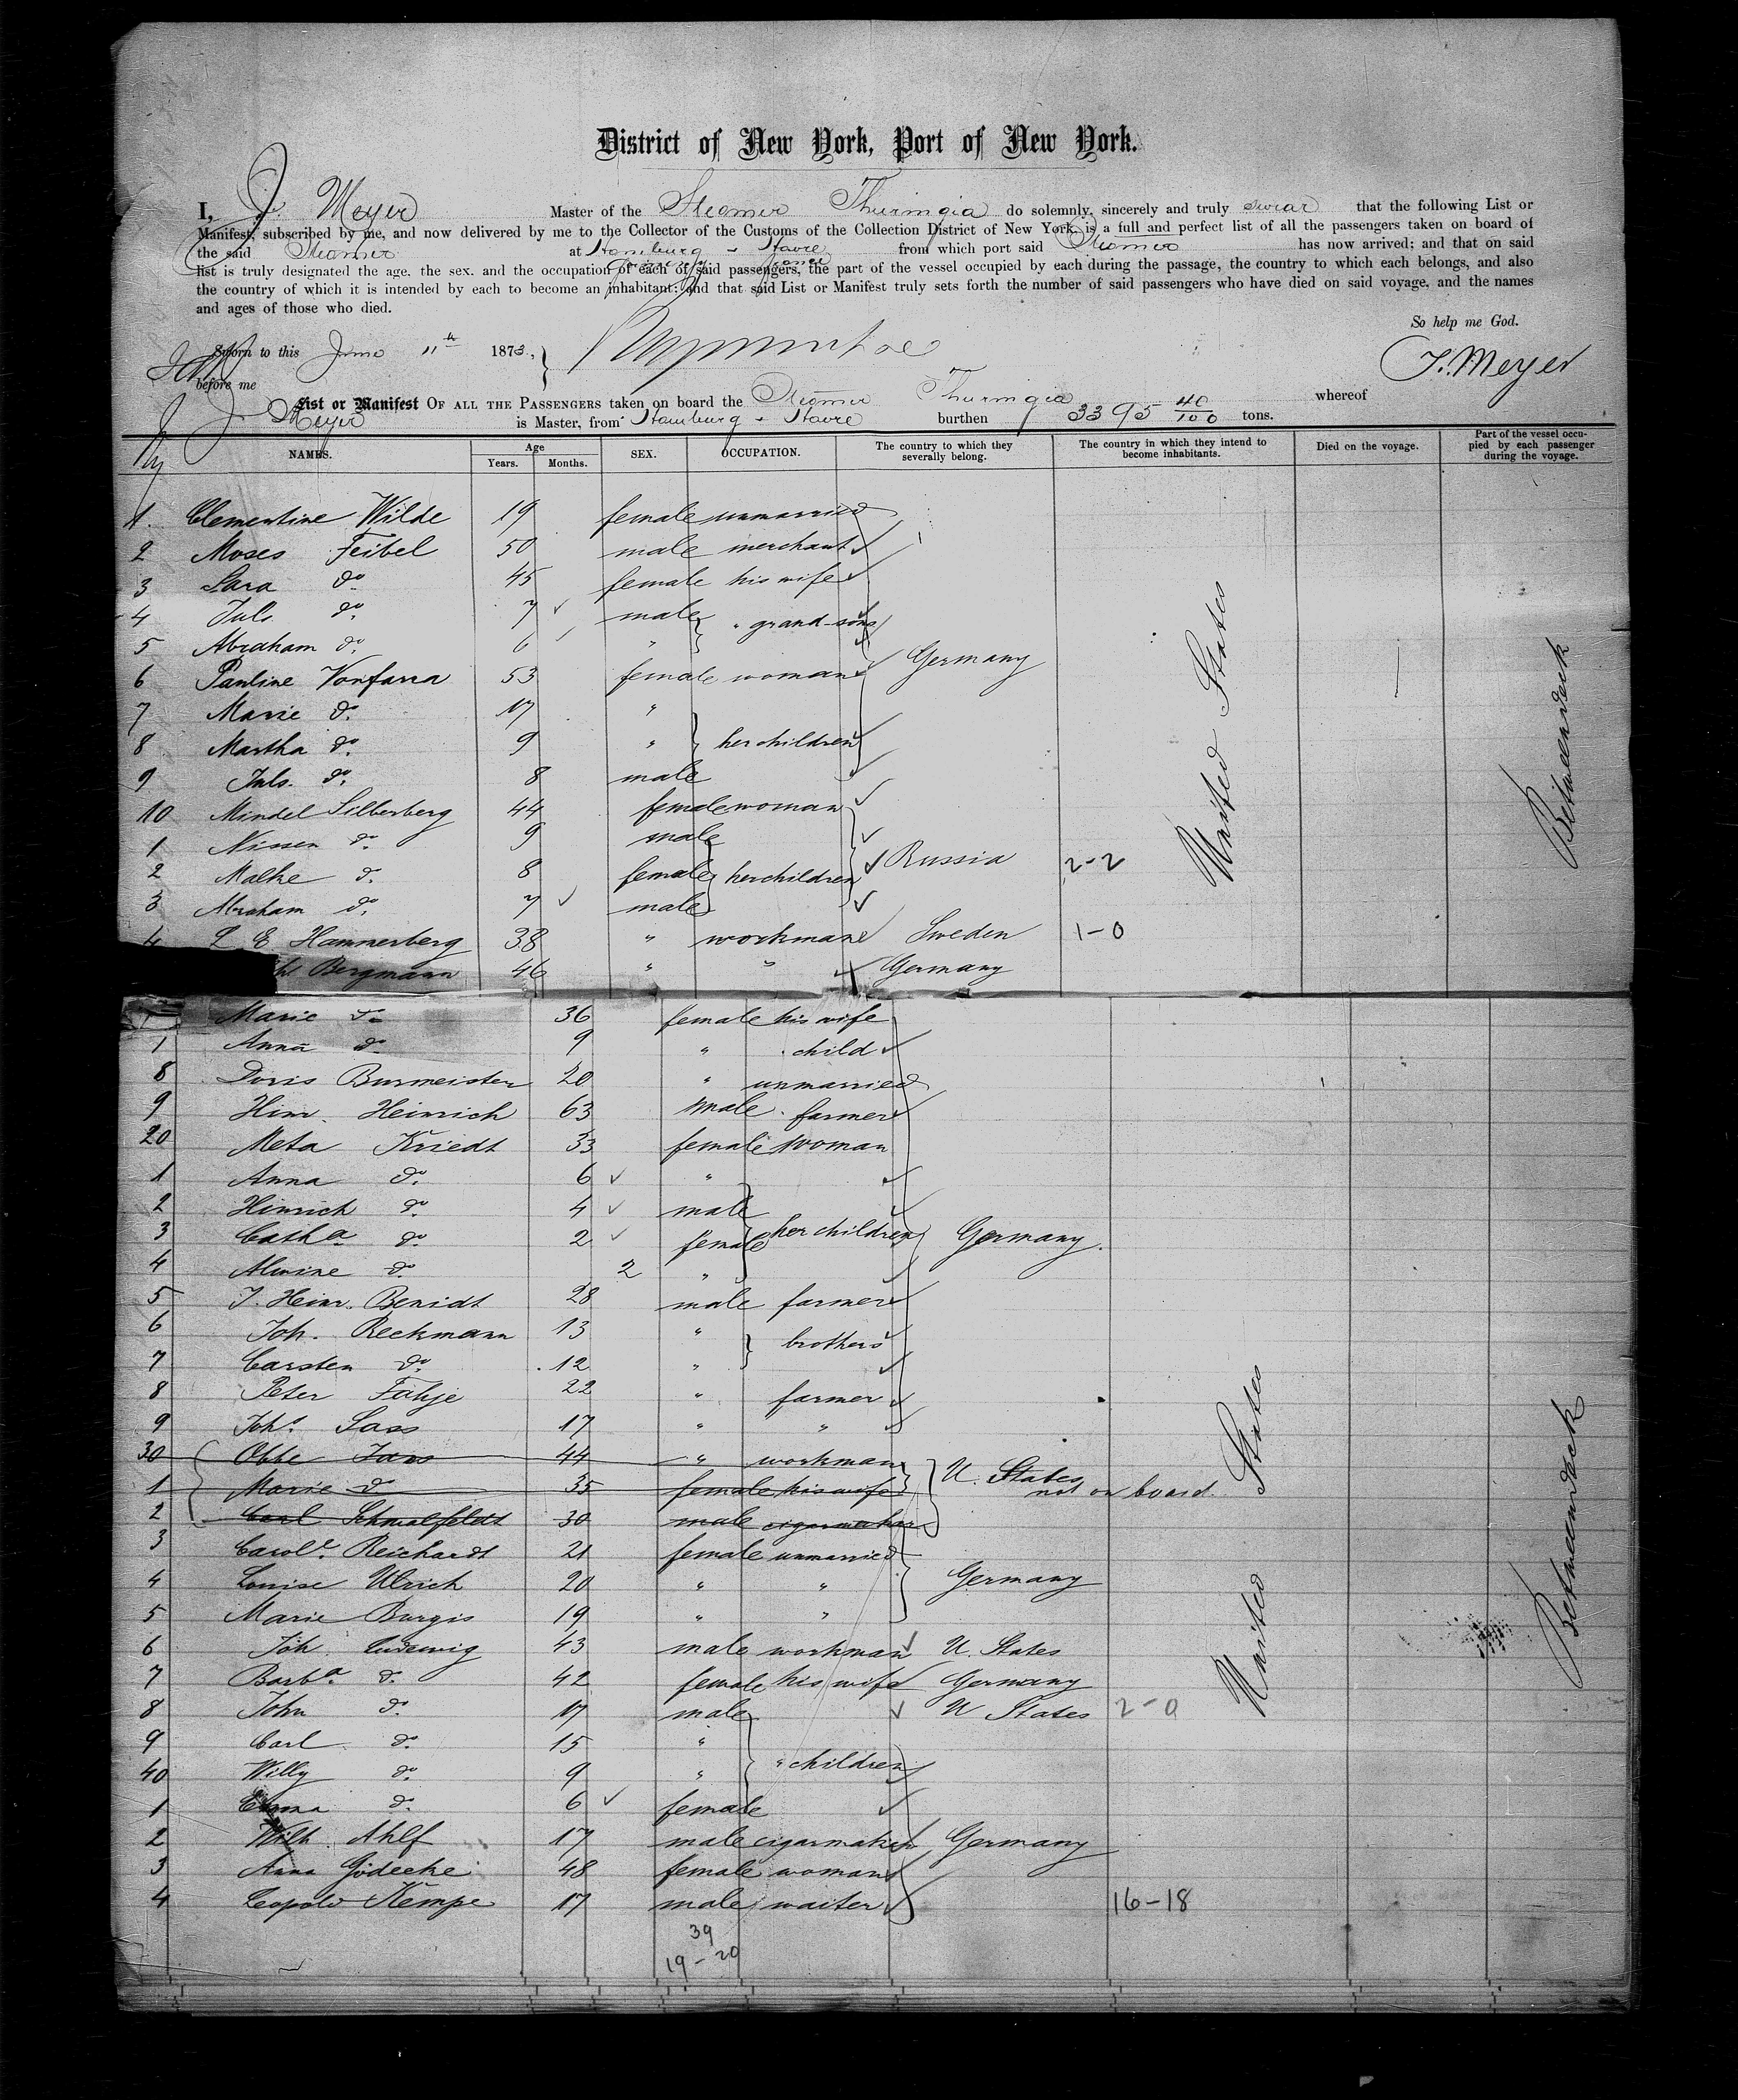 District of New York, Port of New York.
I, J. Meyer Master of the Steamer Thuringia do solemnly, sincerely and truly swear that the following List or
Manifest, subscribed by me, and now delivered by me to the Collector of the Customs of the Collection District of New York, is a full and perfect list of all the passengers taken on board of
the said Steamer at Hamburg & Havre from which port said Steamer has now arrived; and that on said
list is truly designated the age, the sex, and the occupation of each of said passengers, the part of the vessel occupied by each during the passage, the country to which each belongs, and also
the country of which it is intended by each to become an inhabitant; and that said List or Manifest truly sets forth the number of said passengers who have died on said voyage, and the names
and ages of those who died.
So help me God.
Sworn to this June 11th 1873,
J. Meyer
before me
List or Manifest OF ALL THE PASSENGERS taken on board the Steamer Thuringia whereof
J. Meyer is Master, from Hamburg & Havre burthen 3395 40/100 tons.
NAMES. Age Years. Months. SEX. OCCUPATION. The country to which they severally belong. The country in which they intend to become inhabitants. Died on the voyage. Part of the vessel occupied by each passenger during the voyage.
1. Clementine Wilde 19 female unmarried
2 Moses Feibel 50 male merchant
3 Sara do 45 female his wife
4 Juls do 7 male " grand-sons
5 Abraham do 6 "
6 Pauline Vonfarra 53 female woman Germany
7 Marie do 17 "
8 Martha do 9 " her children
9 Juls. do 8 male
10 Mindel Silberberg 44 female woman
1 Nissen do 9 male
2 Malke do 8 female her children Russia 2-2
3 Abraham do 7 male
4 L E Hammerberg 38 " workman Sweden 1-0
Bergmann 46 " " Germany
United States
Betweendeck
Marie do 36 female his wife
1 Anna do 9 " child
8 Doris Burmeister 20 " unmarried
9 Hinr. Heinrich 63 male farmer
20 Meta Kriedt 33 female woman
1 Anna do 6 "
2 Hinrich do 4 male
3 Catha do 2 female her children Germany.
4 Alwine do 2 "
5 J. Heinr. Benidt 28 male farmer
6 Joh. Reckmann 13 " brothers
7 Carsten do 12 "
8 Peter Fahje 22 " farmer
9 Johs Sass 17 " "
30 Obbe Jans 44 " workman U. States
1 Marie do 35 female his wife not on board.
2 Carl Schmalfeldt 30 male cigarmaker
3 Carole Reichardt 21 female unmarried
4 Louise Ulrich 20 " " Germany
5 Marie Burgis 19 " "
6 Joh. Ludewig 43 male workman U. States
7 Barba do 42 female his wife Germany
8 John do 17 male U States 2-0
9 Carl do 15 "
40 Willy do 9 " " children
1 Emma do 6 female
2 Wilh. Ahlf 17 male cigarmaker Germany
3 Anna Gödecke 48 female woman
4 Leopold Kempe 17 male waiter 16-18
United States
Betweendeck
39
19-20